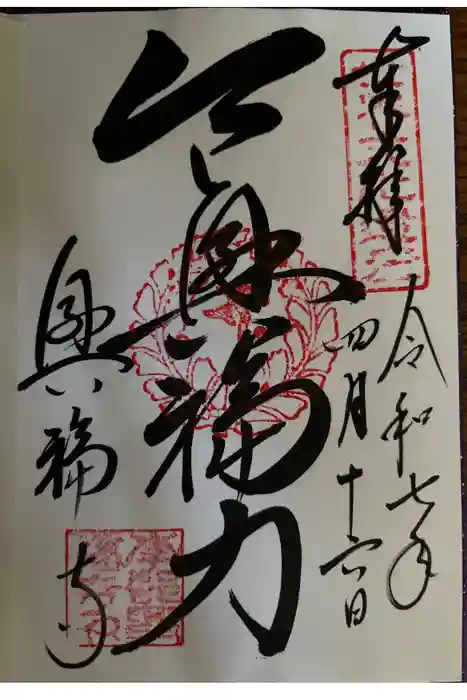 奉拝
令和七年
四月十六日
令興福力
興福寺